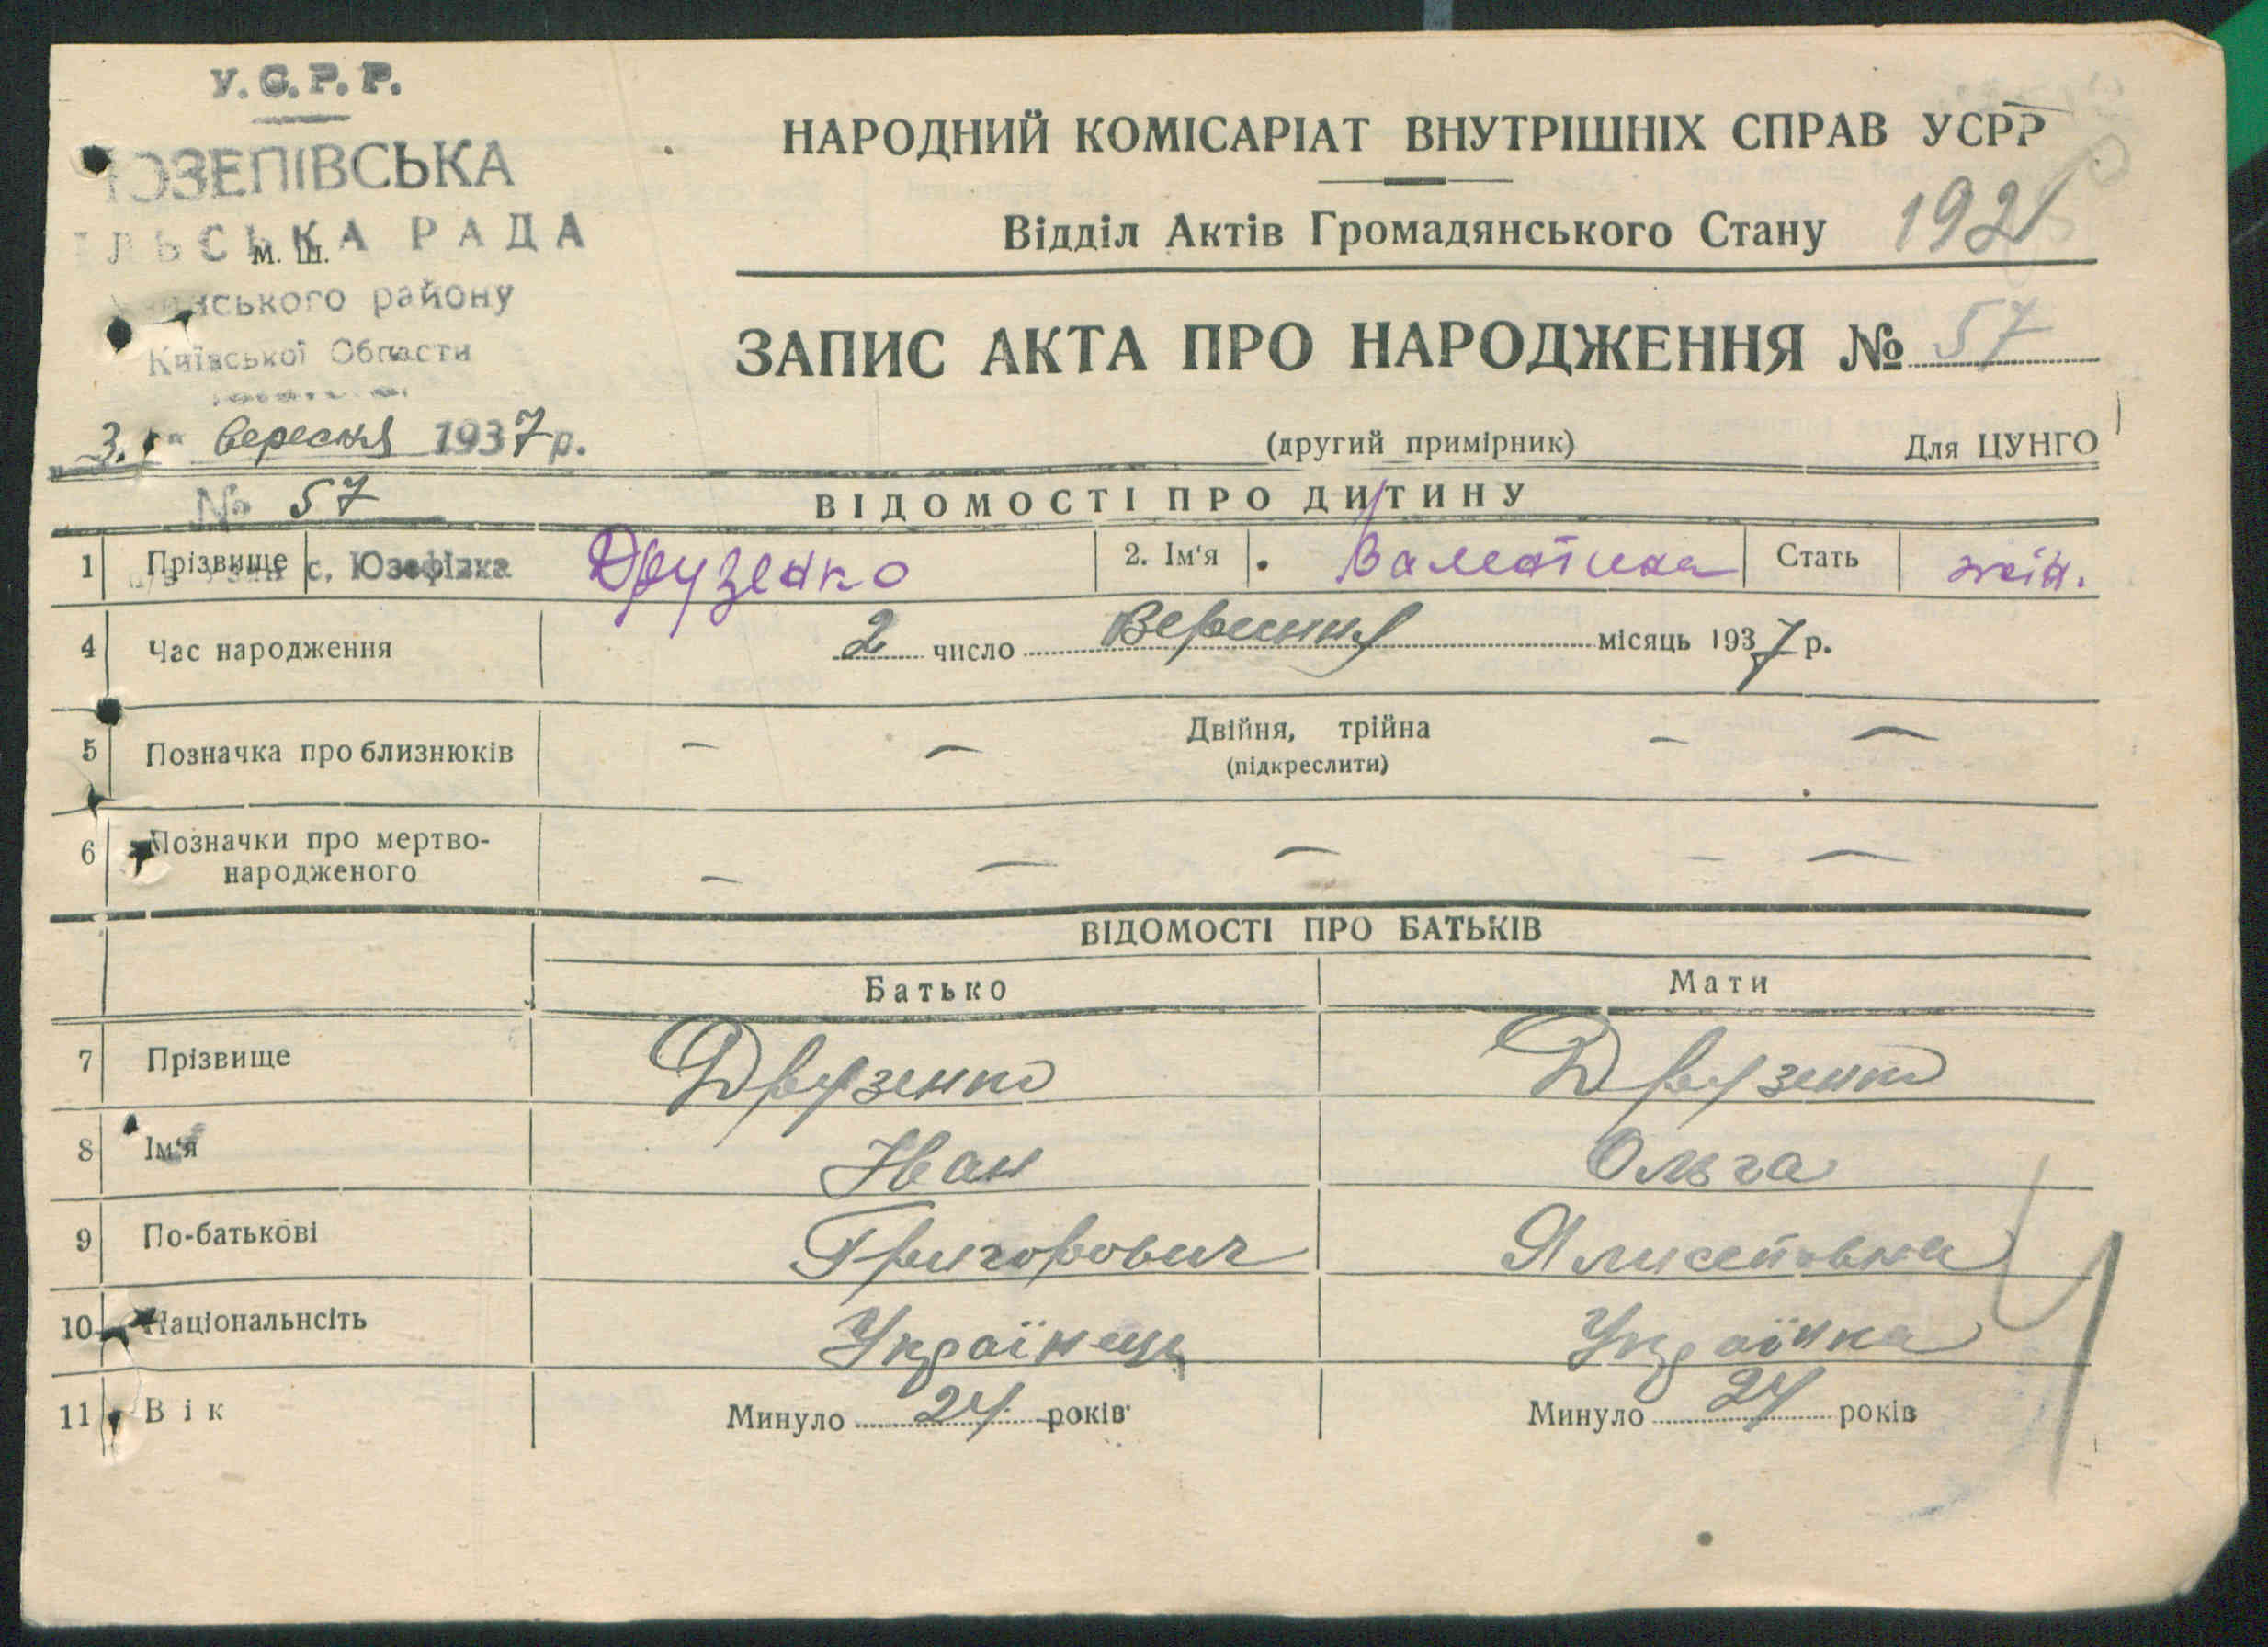 У.С.Р.Р.
ЮЗЕПІВСЬКА
ІЛЬСЬКА РАДА
М. Ш.
нського району
Київської Области
3. вересня 1937 р.
№ 57
НАРОДНИЙ КОМІСАРІАТ ВНУТРІШНІХ СПРАВ УСРР
Відділ Актів Громадянського Стану
192
ЗАПИС АКТА ПРО НАРОДЖЕННЯ № 57
(другий примірник) Для ЦУНГО
ВІДОМОСТІ ПРО ДИТИНУ
1 Прізвище с. Юзефівка Друзенко 2. Ім‘я Валентина Стать жін.
4 Час народження 2 число Вересння місяць 1937 р.
5 Позначка про близнюків — — Двійня, трійна — —
(підкреслити)
6 Позначки про мертво-
народженого — — — — —
ВІДОМОСТІ ПРО БАТЬКІВ
Батько Мати
7 Прізвище Друзенко Друзенко
8 Ім‘я Іван Ольга
9 По-батькові Григорович
10 Національнсіть Українець Українка
11 Вік Минуло 24 років Минуло 24 років